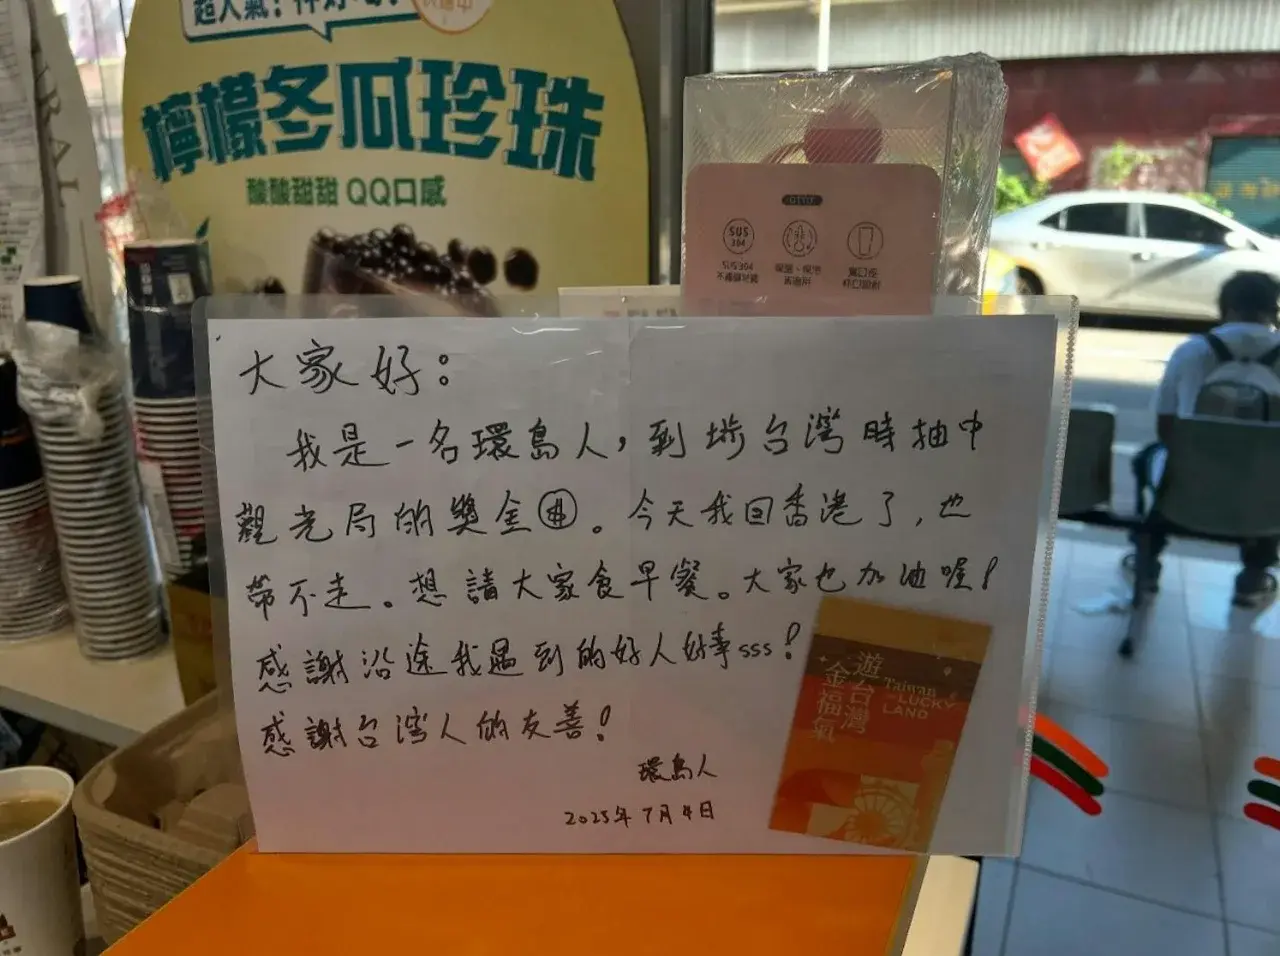 超人氣！
檸檬冬瓜珍珠
酸酸甜甜 QQ口感
SUS
304
大家好：
我是一名環島人，到埗台灣時抽中
觀光局的獎金。今天我回香港了，也
帶不走。想請大家食早餐。大家也加油喔！
感謝沿途我遇到的好人好事sss！
感謝台灣人的友善！
環島人
2025年7月4日
遊台灣
金福氣
Taiwan
the LUCKY
LAND